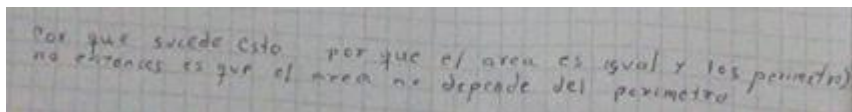 Por que sucede esto por que el area es igual y los perimetros
no entonces es que el area no depende del perimetro